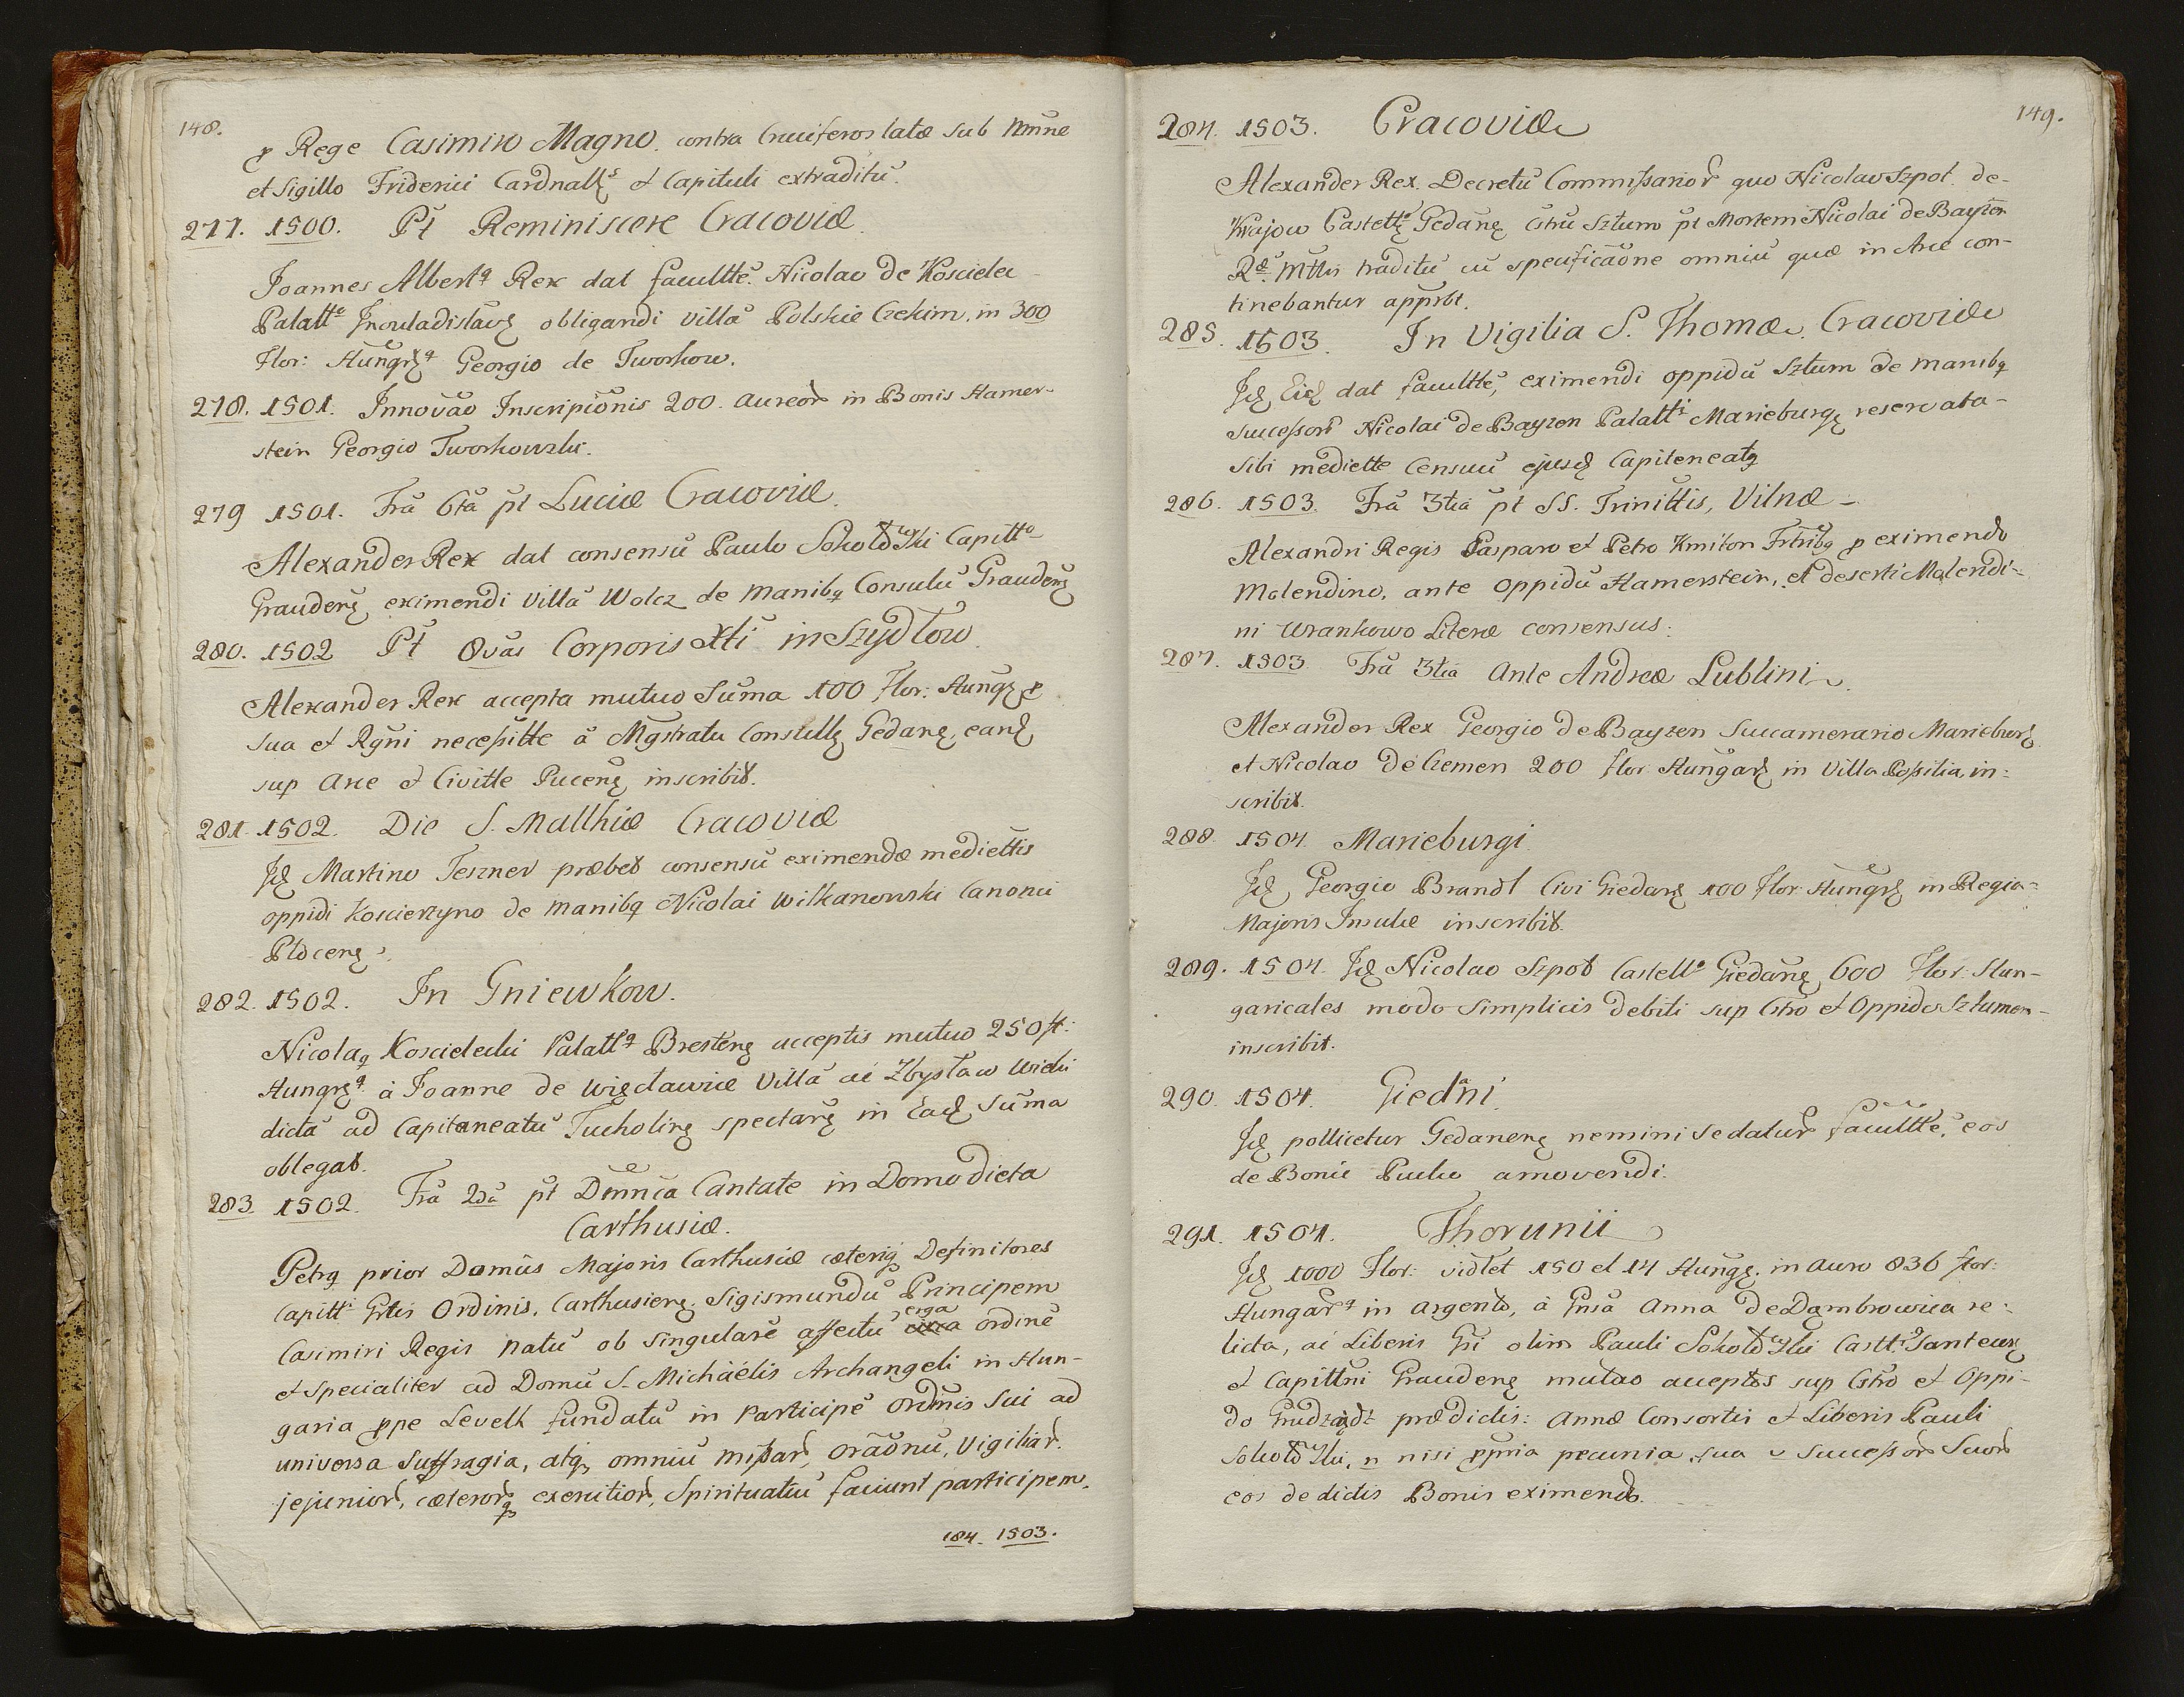 148.
p Rege Casimiro Magno. contra Cruciferos latæ sub Nm̃ne
et Sigillo Friderici Cardnallꝫ & Capituli extraditũ.
277. 1500. P̃t Reminiscere Cracoviæ
Joannes Albertꝗ Rex dat facultt̃e. Nicolao de Kosciele
Palatto Jnouladislavꝫ obligandi villã Polskie Czekim, in 300
Flor: Hungrꝫ Georgio de Tworkow.
278. 1501. Innovão Inscripiõnis 200. aureor̃ in Bonis Hamer-
stein Georgio Tworkowski.
279 1501. Frã 6tã p̃t Luciæ Cracoviæ.
Alexander Rex dat consensũ Paulo Sokołowski Capitto
Graudenꝫ eximendi Villã Wolcz de manibꝗ Consulũ Graudenꝫ
280. 1502 P̃t Ovãs Corporis Xti in Szydłow
Alexander Rex accepta mutuo Sum̃a 100 Flor: Hungꝫ p
sua et Rgñi necessitte ã Mgstratu Constellꝫ Gedanꝫ, eand
sup Arce & Civitte Pucenꝫ inscribit.
281. 1502. Die S. Matthiæ Cracoviæ
Jd Martino Teszner præbet consensũ eximendæ mediettis
oppidi Koscierzyno de manibꝗ Nicolai Wilkanowski Canonici
Płocenꝫ.
282. 1502. In Gniewkow.
Nicolaꝗ Koscielecki Palattꝗ Brestenꝫ acceptis mutuo 250 fł:
Hungrꝫ à Joanne de Więcławice Villã ac Zbysław Wielki
dictã ad Capitaneatũ Tucholienꝫ spectarꝫ in Ead Sum̃a
oblegat.
283. 1502. Frã 2dã p̃t Dmñca Cantate in Domo dicta
Carthusiæ.
Petrꝗ prior Domũs Majoris Carthusiæ cæteriqꝫ Definitores
Capitt Grtis Ordinis, Carthusienꝫ. Sigismundũ Principem
Casimiri Regis natũ ob singularẽ affectũ circa erga ordinẽ
& specialiter ad Domũ S. Michäelis Archangeli in Hun-
garia ppe Levelt fundatũ in participẽ ordinis sui ad
universa suffragia, atqꝫ omniũ missar̃, orãonũ, vigiliar̃.
jejunior̃, cæteror̃qꝫ exercitior̃, Spiritualiũ faciunt participem.
184. 1503.
149.
284. 1503. Cracoviæ
Alexander Rex. Decretũ Commissarior̃ quo Nicolao Szpot. de-
Krajow Castellꝫ Gedanꝫ Cstrũ Sztum p̃t Mortem Nicolai de Bayzen
Ræ Mttis traditũ cũ specificãone omniũ quæ in Arce con-
tinebantur apprbt.
285. 1503. In Vigilia S. Thomæ. Cracoviæ
Jd Eid dat facultte, eximendi oppidũ Sztum de manibꝗ
successor̃ Nicolai de Bayzen Palatti Marieburgꝫ reservata-
sibi mediette Censuũ ejusd Capiteneatꝗ
286. 1503. Frã 3tiã p̃t SS. Trinittis, Vilnæ –
Alexandri Regis Gasparo et Petro Kmiton Frtribꝗ p eximendo
Molendino, ante oppidũ Hamerstein, et deserti Molendi-
ni Wrankowo Literæ consensus.
287. 1503. Frã 3tiã Ante Andreæ Lublini.
Alexander Rex Georgio de Bayzen Succamerario Marieburꝫ
et Nicolao de Czemen 200 flor Hungarꝫ in Villa Possilia, in-
scribit.
288. 1504. Marieburgi.
Jd Georgio Brandt Civi Giedanꝫ 100 Flor: Hungrꝫ in Regia-
Majoris Insulæ inscribit.
289. 1504. Jd Nicolao Szpot Castello Giedanꝫ 600 Flor: Hun-
garicales modo simplicis debiti sup Cstro et Oppido Sztumen-
inscribit.
290. 1504. Giedani.
Jd pollicetur Gedanenꝫ nemini se datur̃ facultte, eos
de Bonis Pucko amovendi.
291. 1504. Thorunii
Jd 1000 Flor: vidlet 150 et 14 Hungꝫ. in auro 836 flor:
Hungarꝗ in argento, à Gnsa Anna de Dąmbrowica re-
licta, ac Liberis Gsi olim Pauli Sokołowski Castto Santecenꝫ
& Capittni Graudenꝫ mutuo acceptos sup Cstro et Oppi-
do Grudządz prædictis: Annæ Consortis & Liberis Pauli
Sokołowski, n nisi ppria pecunia sua v Successor̃ Suor̃
eos de dictis Bonis eximendo.